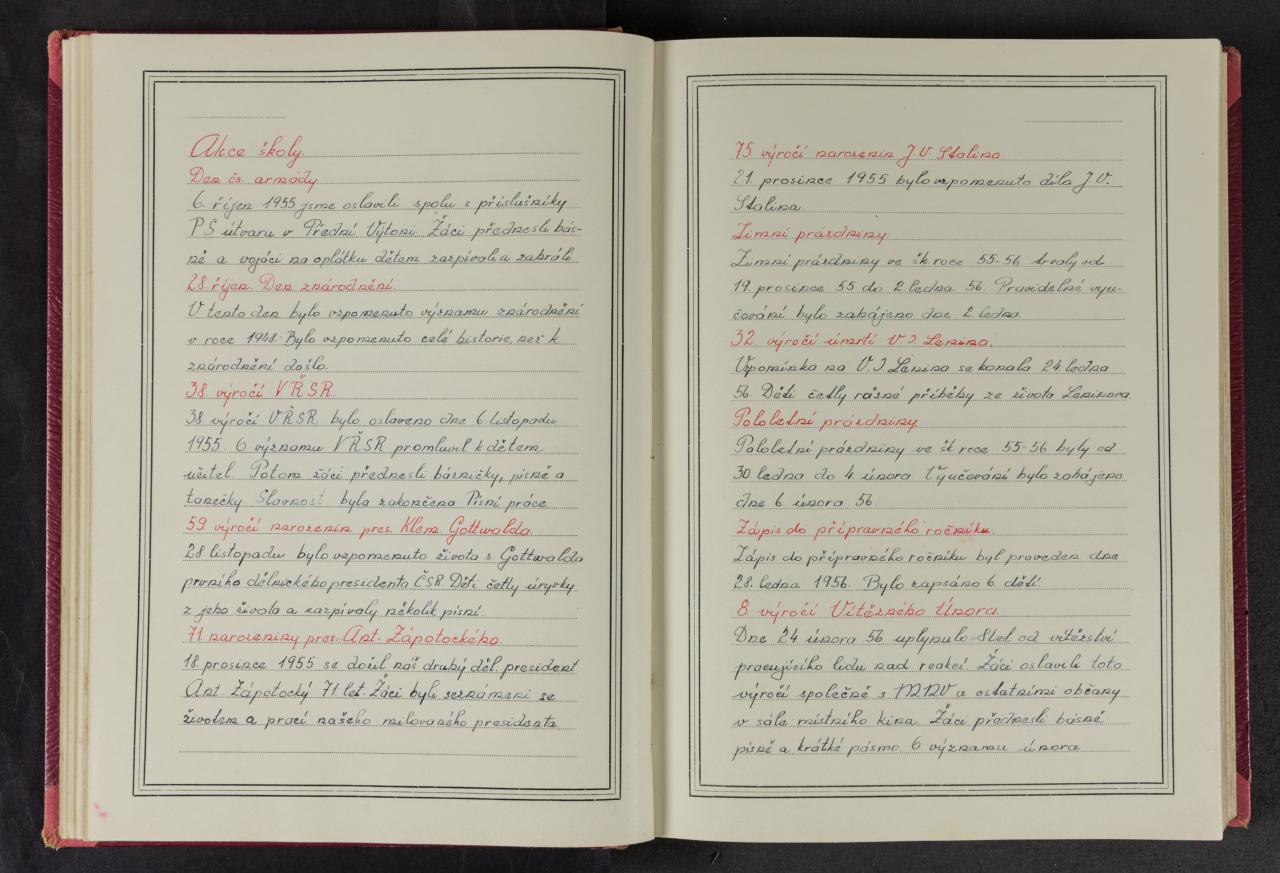 Akce školy.
Den čs. armády
6. říjen 1955 jsme oslavili spolu s příslušníky
PS útvaru v Přední Výtoni. Žáci přednesli bás-
ně a vojáci na oplátku dětem zazpívali a zahráli
28. říjen. Den znárodnění.
V tento den bylo vzpomenuto významu znárodnění
v roce 1948. Bylo vzpomenuto celé historie, než k
znárodnění došlo.
38. výročí VŘSR.
38. výročí VŘSR bylo oslaveno dne 6. listopadu
1955. O významu VŘSR promluvil k dětem
učitel. Potom žáci přednesli básničky, písně a
tanečky. Slavnost byla zakončena Písní práce.
59. výročí narozenin pres. Klem. Gottwalda.
28 listopadu bylo vzpomenuto života s. Gottwalda
prvního dělnického presidenta ČSR. Děti četly úryvky
z jeho života a zazpívaly několik písní.
71 narozeniny pres. Ant. Zápotockého.
18. prosince 1955 se dožil náš druhý děl. president
Ant. Zápotocký 71 let. Žáci byli seznámeni se
životem a prací našeho milovaného presidenta.
75. výročí narozenin J. V. Stalina
21. prosince 1955 bylo vzpomenuto díla J. V.
Stalina.
Zimní prázdniny.
Zimní prázdniny ve šk. roce 55-56 trvaly od
19. prosince 55 do 2 ledna 56. Pravidelné vyu-
čování bylo zahájeno dne 2. ledna.
32. výročí úmrtí V. I. Lenina.
Vzpomínka na V. I. Lenina se konala 24. ledna
56. Děti četly různé příběhy ze života Leninova
Pololetní prázdniny.
Pololetní prázdniny ve šk. roce 55-56 byly od
30. ledna do 4 února. Vyučování bylo zahájeno
dne 6. února 56.
Zápis do přípravného ročníku.
Zápis do přípravného ročníku byl proveden dne
28. ledna 1956. Bylo zapsáno 6 dětí.
8 výročí Vítězného Února.
Dne 24 února 56 uplynulo 8 let od vítězství
pracujícího lidu nad reakcí. Žáci oslavili toto
výročí společně s MNV a ostatními občany
v sále místního kina. Žáci přednesli básně,
písně a krátké pásmo. O významu února